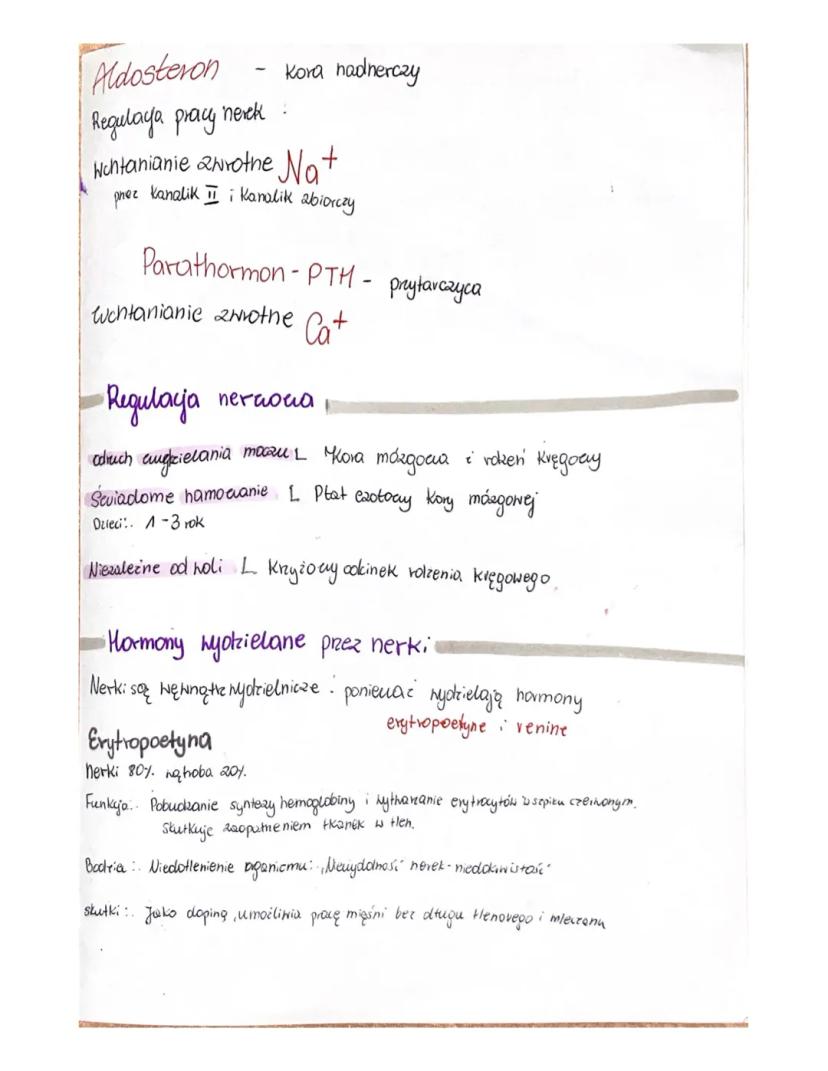 Aldosteron - kora nadnerczy
Regulacja pracy nerek :
Wchłanianie zwrotne Na+
przez kanalik II i kanalik zbiorczy
Parathormon - PTH - przytarczyca
Wchłanianie zwrotne Ca+
Regulacja nerwowa
odruch oddzielania moczu L Kora mózgowa i rdzeń kręgowy
Świadome hamowanie L Płat czołowy kory mózgowej
Dzieci: 1-3 rok
Niezależne od woli L Krzyżowy odcinek rdzenia kręgowego
Hormony wydzielane przez nerki
Nerki są wewnątrzwydzielnicze : ponieważ wydzielają hormony
erytropoetynę i reninę
Erytropoetyna
Nerki 80% wątroba 20%.
Funkcja: Pobudzanie syntezy hemoglobiny i wytwarzanie erytrocytów w szpiku czerwonym.
Skutkuje zaopatrzeniem tkanek w tlen.
Bodźca : Niedotlenienie organizmu: "Niewydolność nerek - niedokrwistość"
skutki : Jako doping, umożliwia pracę mięśni bez długu tlenowego i mleczanu